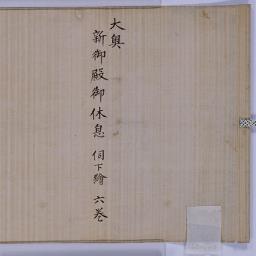 大奥
新御殿御休息 伺下繪 六巻